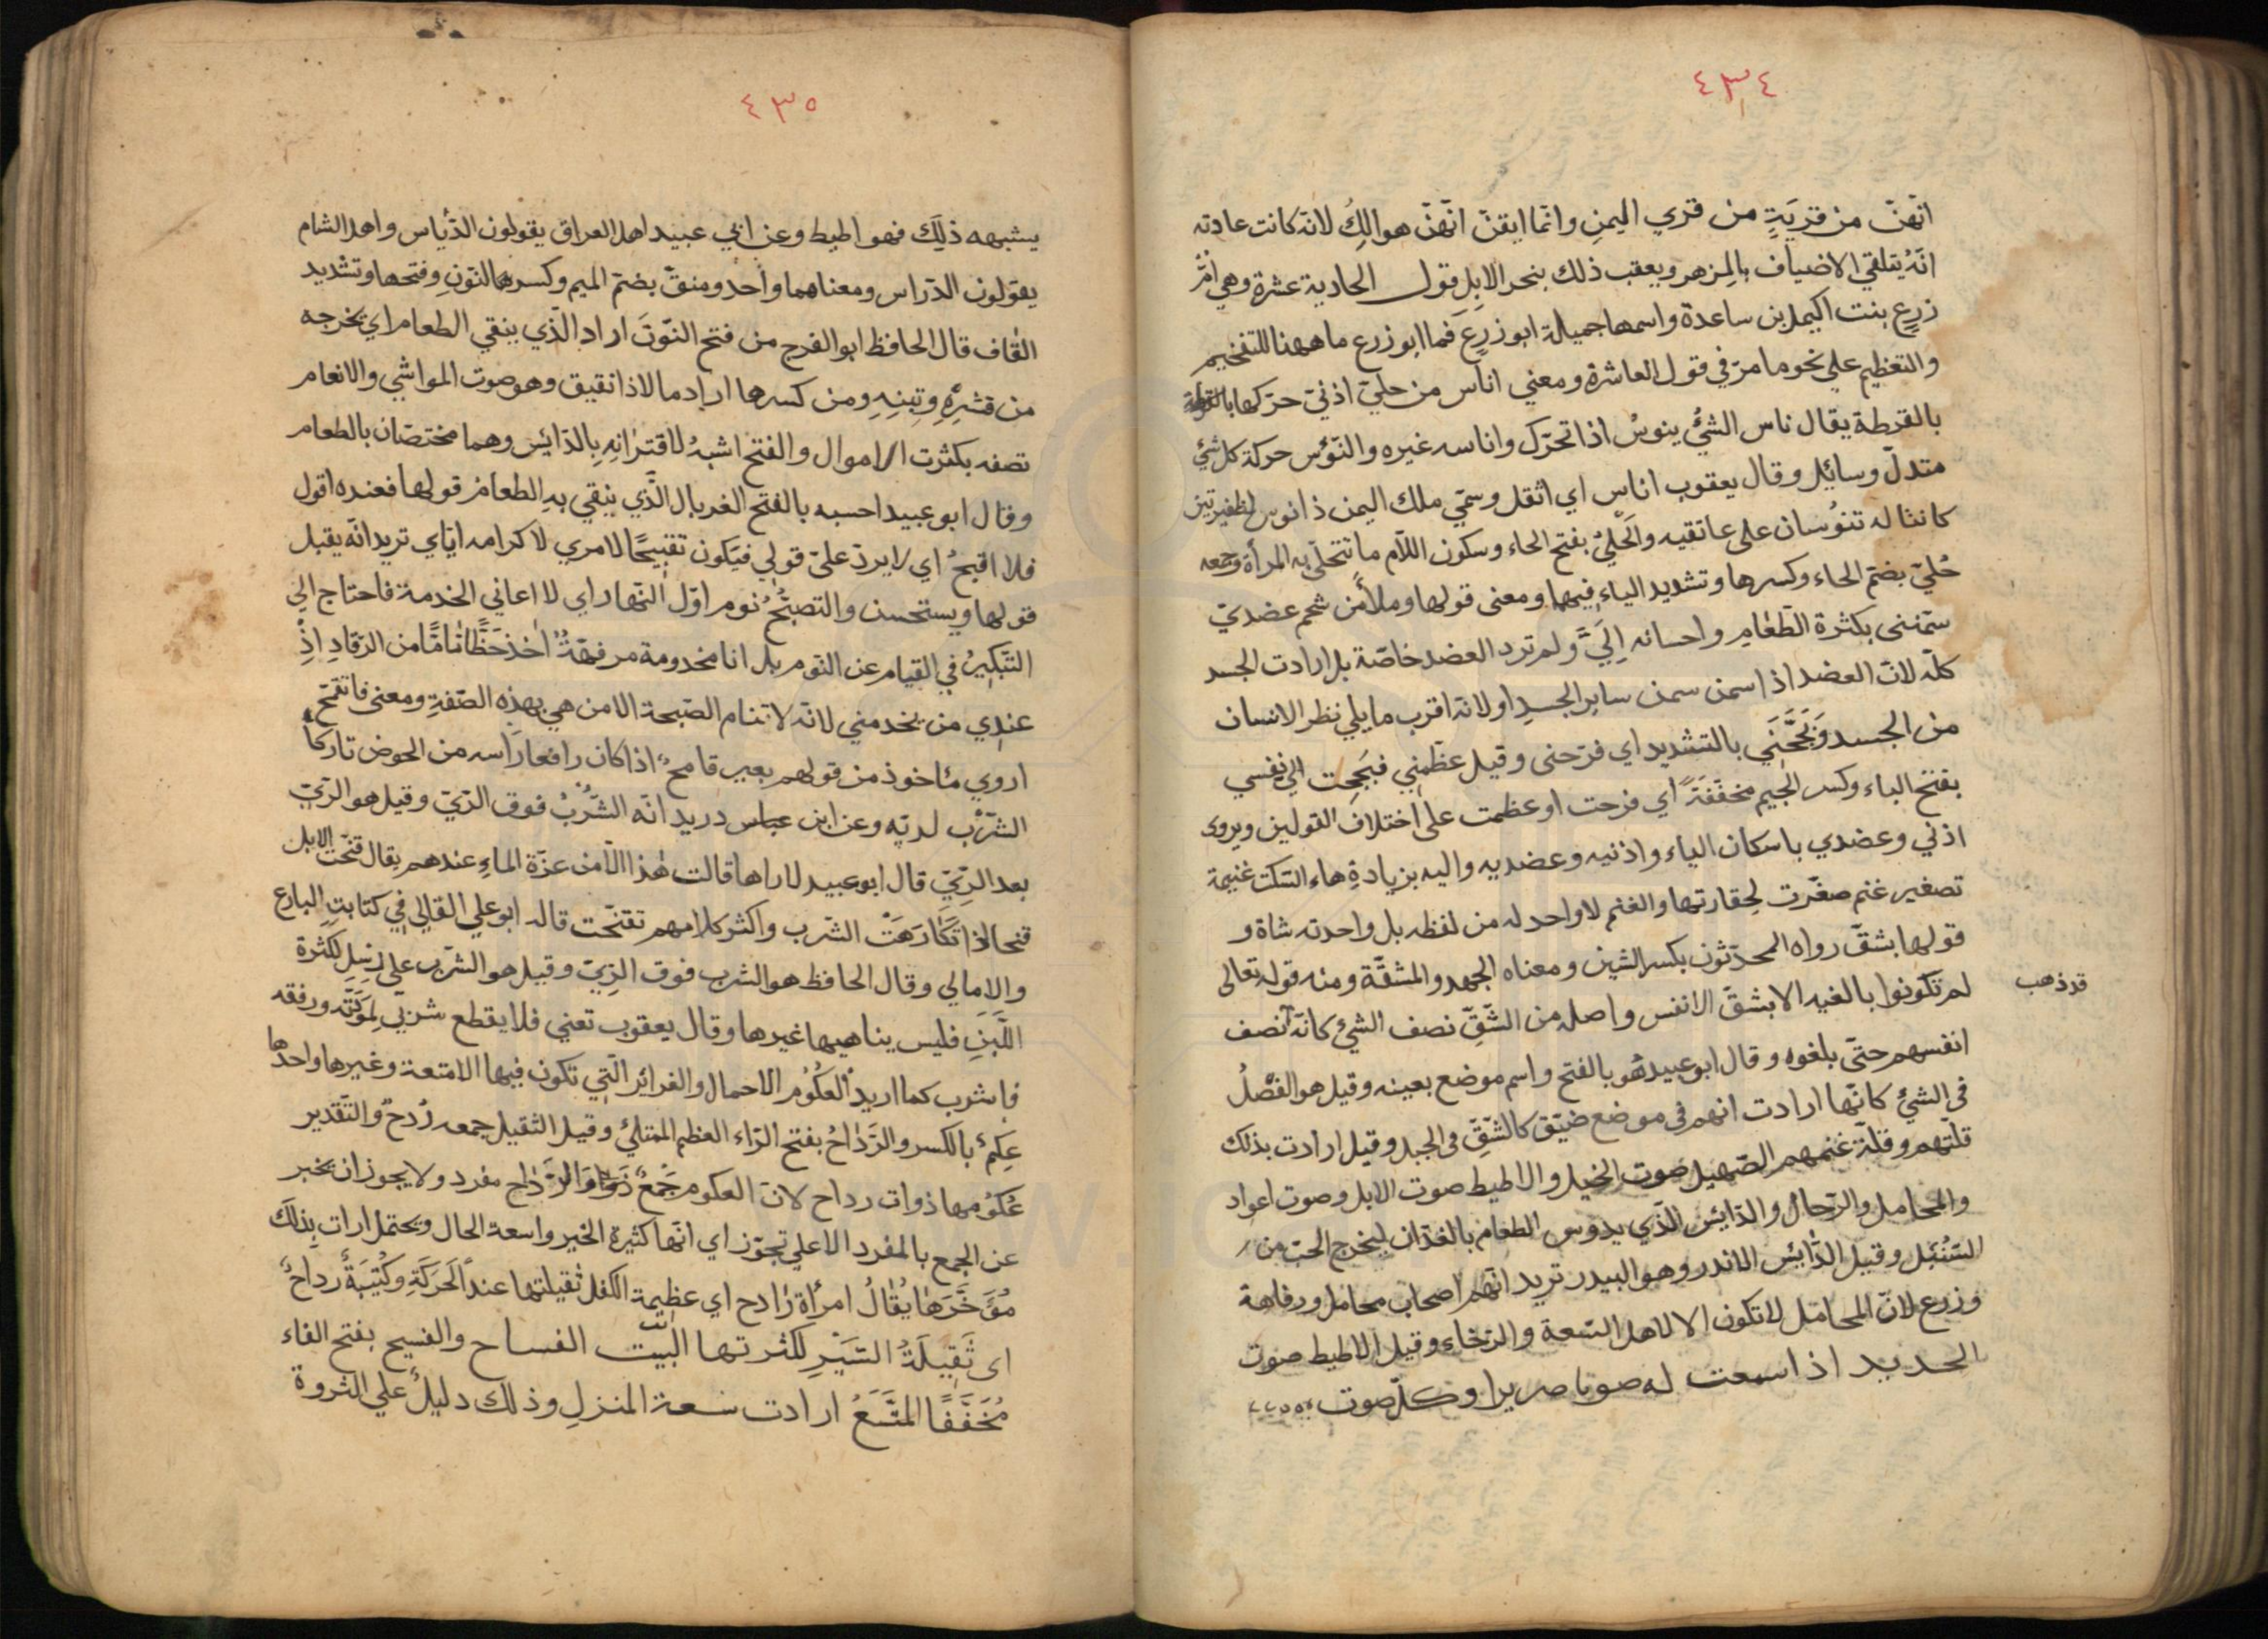 ٤٣٤
انّهنّ من قريَةٍ من قري اليمنِ وانّما ايقنّ انّهنّ هوالِكُ لانّه كانت عادته
انّهُ يتلقي الاضياف بالمِزهر ويعقب ذلك بنحر الابِلِ قول الحادية عشرة وهي اُمُّ
زرعٍ بنت اكيمل بن ساعدة واسمها جميلة ابو زرعٍ فما ابو زرع ما ههنا للتفخيم
والتعظيم علي نحو ما مرّ في قول العاشرة ومعني اناس من حليّ اذنيّ حرّكها
بالقرطة يقال ناس الشئُ ينوسُ اذا تحرّك واناسه غيره والنّوس حركة كل شئ
متدلّ وسايل وقال يعقوب اناس اي اثقل وسمّي ملك اليمن ذا نوس لظفيرتين
كانتا له تنوُسان علي عاتقيه والَحَليُ بفتح الحاء وسكون اللّام ما تتحلّي به المرأة وجمعه
حُليّ بضمّ الحاء وكسرها وتشديد الياء فيهما ومعنى قولها وملأ من شحم عضديّ
سمّننى بكثرة الطّعامِ واحسانه اِلَيَّ ولم ترد العضد خاصّة بل ارادت الجسد
كلّه لانّ العضد اذا سمن سمن ساير الجسدِ اولانّه اقرب ما يلي نظر الانسان
من الجسد وَبَجَّحَنَي بالتشديد اي فرّحنى وقيل عظّمني فبَجِحت الي نفسي
بفتح الباء وكسر الجيم مخفّفَةً اي فرحت او عظمت علي اختلاف القولين ويروى
اذني وعضدي باسكان الياء واذنيه وعضديه واليه بزيادةِ هاء السّكت غنيمة
تصغير غنم صغّرت لِحقارتها والغنم لا واحد له من لفظه بل واحدته شاة و
قولها بشقّ رواه المحدّثون بكسر الشين ومعناه الجهد والمشقّة ومنه قوله تعالى
لم تكونوا بالغيه الا بشقّ الانفس واصله من الشّقِّ نصف الشئ كانّه نصف
قد ذهب
انفسهم حتّى بلغوه وقال ابو عبيد هُو بالفتح واسم موضع بعينه وقيل هو الفَصْلُ
فى الشئ كانّها ارادت انهم فى موضع ضيّق كالشّقِّ فى الجبد وقيل ارادت بذلك
قلّتهم وقلّة غنمهم الصّهيل صوت الخيل والاطيط صوت الابل وصوت اعواد
والمحامل والرّحال والدّايس الّذي يدوس الطعام بالفدّان ليخرج الحبّ من
السّنُبَل وقيل الدّايس الاندر وهو البيدر تريد انّهم اصحاب محامل ورفاهة
وزرع لانّ المحامل لا تكون الا لاهل السّعة والرّخاء وقيل الاطيط صوت
الحديد اذا سمعت له صوتا صريرا وكلّ صوت
٤٣٥
يشبهه ذلِكَ فهو اطيط وعن ابي عبيد اهل العراق يقولون الدّياس واهل الشام
يقولون الدّراس ومعناهما واحد ومنقّ بضمّ الميم وكسرها النّونِ وفتحها وتشديد
القاف قال الحافظ ابو الفرج من فتح النّونَ اراد الّذي ينقي الطعام اي يخرجه
من قشرِهِ وتبنِهِ ومن كسرها اراد مالا ذا نقيق وهو صوت المواشي والانعام
تصفه بكثرت الاموال والفتح اشبهُ لاقترانِهِ بِالدّايس وهما مختصّان بالطعام
وقال ابو عبيد احسبه بالفتح الغربال الَّذي ينقي بهِ الطعام قولها فعنده اقول
فلا اقبحُ اي لا يردّ عليّ قولي فيَكون تقبيحًا لامري لا كرامه ايّاي تريد انّه يقبل
قولها ويستحسن والتصبُّحُ نوم اوّل النّهار اي لا اعاني الخدمة فاحتاج الي
التّبكيرُ في القيام عن النّوم بل انا مخدومة مرفهّةٌ اخذ حَظًّا تامًّا من الرّقادِ اِذْ
عنديِ من يخدمني لانّه لا تنام الصّبحة الا من هي بِهذِه الصّفةِ ومعنى فاتقمّحُ
اروي مئاخوذ من قولهم بعير قامحٌ اذا كان رافعا رَاسه من الحوض تاركاً
الشّرْب لريّه وعن ابن عباس دريد انّه الشّربُ فوق الرّيّ وقيل هو الرّيّ
بعد الرّيّ قال ابو عبيد لا اراها قالت هٰذا الّا من عزّة الماءِ عندهم يقال قنحت الابل
قنحا اذا تَكَارَهَتْ الشّرب واكثر كلامهم تقنّحت قاله ابو علي القالي في كتابتِ البارع
والامالي وقال الحافظ هو الشرب فوق الرّيّ وقيل هو الشّرب علي رِسْل لكثرة
اللَّبَنِ فليس يناهيها غيرها وقال يعقوب تعني فلا يقطع شربي لِمؤَنَّه ورفقه
فاشرب كما اريد العكوُم الاحمال والغرائر الّتي تكون فيها الامتعة وغيرها واحدها
عِكمٌ بالكسر والرَّدَاحُ بفتح الرّاء العظيم الممتلئ وقيل الثقيل جمعه رُدحٌ والتّقدير
عُكوُمها ذوات رداح لانّ العكوم جَمْعُ والرَّدَاح مفرد ولا يجوز ان يخبر
عن الجمع بالمفرد الا علي تجوّز اي انّها كثيرة الخير واسعة الحال ويحتمل ارات بِذلكَ
مُؤَخَّرَهَا يُقَالُ امرأة رَادح اي عظيمة الكفل ثقيلتها عند الَحَرَكَةِ وكُتيبَةٌ رداحٌ
اى ثَقِيلَةُ السَّيْرِ لكثرتها البيّت الفساح والفسيح بفتح الفاء
مُخَفَّفًا المتَّسَعُ ارادت سعة المنزلِ وذلك دليلٌ علي الثروة